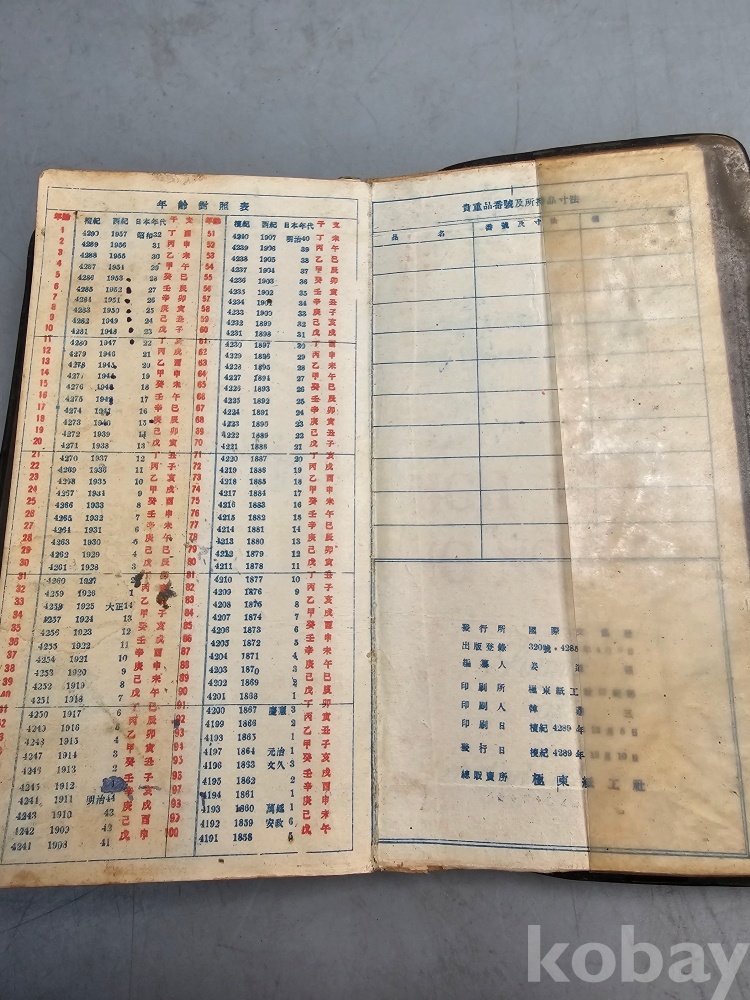 年齡對照表
年齡 檀紀 西紀 日本年代 干 支 年齡 檀紀 西紀 日本年代 干 支
1 4290 1957 昭和32 丁 酉 51 4240 1907 明治40 丁 未
2 4289 1956 31 丙 申 52 4239 1906 39 丙 午
3 4288 1955 30 乙 未 53 4238 1905 38 乙 巳
4 4287 1954 29 甲 午 54 4237 1904 37 甲 辰
5 4286 1953 28 癸 巳 55 4236 1903 36 癸 卯
6 4285 1952 27 壬 辰 56 4235 1902 35 壬 寅
7 4284 1951 26 辛 卯 57 4234 1901 34 辛 丑
8 4283 1950 25 庚 寅 58 4233 1900 33 庚 子
9 4282 1949 24 己 丑 59 4232 1899 32 己 亥
10 4281 1948 23 戊 子 60 4231 1898 31 戊 戌
11 4280 1947 22 丁 亥 61 4230 1897 30 丁 酉
12 4279 1946 21 丙 戌 62 4229 1896 29 丙 申
13 4278 1945 20 乙 酉 63 4228 1895 28 乙 未
14 4277 1944 19 甲 申 64 4227 1894 27 甲 午
15 4276 1943 18 癸 未 65 4226 1893 26 癸 巳
16 4275 1942 17 壬 午 66 4225 1892 25 壬 辰
17 4274 1941 16 辛 巳 67 4224 1891 24 辛 卯
18 4273 1940 15 庚 辰 68 4223 1890 23 庚 寅
19 4272 1939 14 己 卯 69 4222 1889 22 己 丑
20 4271 1938 13 戊 寅 70 4221 1888 21 戊 子
21 4270 1937 12 丁 丑 71 4220 1887 20 丁 亥
22 4269 1936 11 丙 子 72 4219 1886 19 丙 戌
23 4268 1935 10 乙 亥 73 4218 1885 18 乙 酉
24 4267 1934 9 甲 戌 74 4217 1884 17 甲 申
25 4266 1933 8 癸 酉 75 4216 1883 16 癸 未
26 4265 1932 7 壬 申 76 4215 1882 15 壬 午
27 4264 1931 6 辛 未 77 4214 1881 14 辛 巳
28 4263 1930 5 庚 午 78 4213 1880 13 庚 辰
29 4262 1929 4 己 巳 79 4212 1879 12 己 卯
30 4261 1928 3 戊 辰 80 4211 1878 11 戊 寅
31 4260 1927 2 丁 卯 81 4210 1877 10 丁 丑
32 4259 1926 1 丙 寅 82 4209 1876 9 丙 子
33 4258 1925 大正14 乙 丑 83 4208 1875 8 乙 亥
34 4257 1924 13 甲 子 84 4207 1874 7 甲 戌
35 4256 1923 12 癸 亥 85 4206 1873 6 癸 酉
36 4255 1922 11 壬 戌 86 4205 1872 5 壬 申
37 4254 1921 10 辛 酉 87 4204 1871 4 辛 未
38 4253 1920 9 庚 申 88 4203 1870 3 庚 午
39 4252 1919 8 己 未 89 4202 1869 2 己 巳
40 4251 1918 7 戊 午 90 4201 1868 1 戊 辰
4250 1917 6 丁 巳 91 4200 1867 慶應3 丁 卯
4249 1916 5 丙 辰 92 4199 1866 2 丙 寅
4248 1915 4 乙 卯 93 4198 1865 1 乙 丑
4247 1914 3 甲 寅 94 4197 1864 元治1 甲 子
4246 1913 2 癸 丑 95 4196 1863 文久3 癸 亥
4245 1912 壬 子 96 4195 1862 2 壬 戌
4244 1911 明治44 辛 亥 97 4194 1861 1 辛 酉
4243 1910 43 庚 戌 98 4193 1860 萬延1 庚 申
4242 1909 42 己 酉 99 4192 1859 安政6 己 未
4241 1908 41 戊 申 100 4191 1858 5 戊 午
貴重品番號及所持品寸法
品 名 番號及寸法
發行所 國際
出版登錄 320號·4285
編纂人 姜
印刷所 極東紙工
印刷人 韓
印刷日 檀紀 4289年
發行日 檀紀 4289年
總販賣所 極東紙工社
kobay